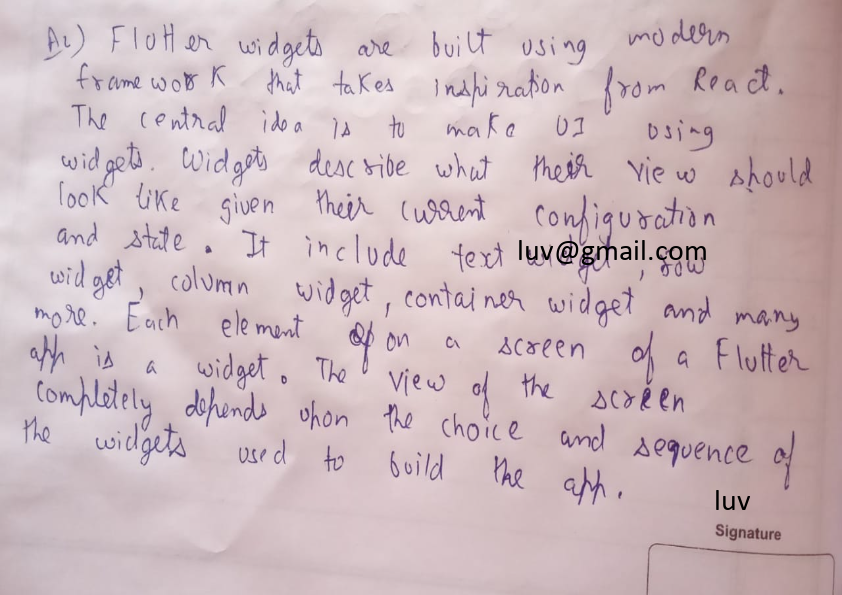 A2) Flutter widgets are built using modern
framework that takes inspiration from React.
The central idea is to make UI using
widgets. Widgets describe what their view should
look like given their current configuration
and state. It include text widget, row
luv@gmail.com
widget, column widget, container widget and many
more. Each element on a screen of a Flutter
app is a widget. The view of the screen
completely depends upon the choice and sequence of
the widgets used to build the app.
luv
Signature